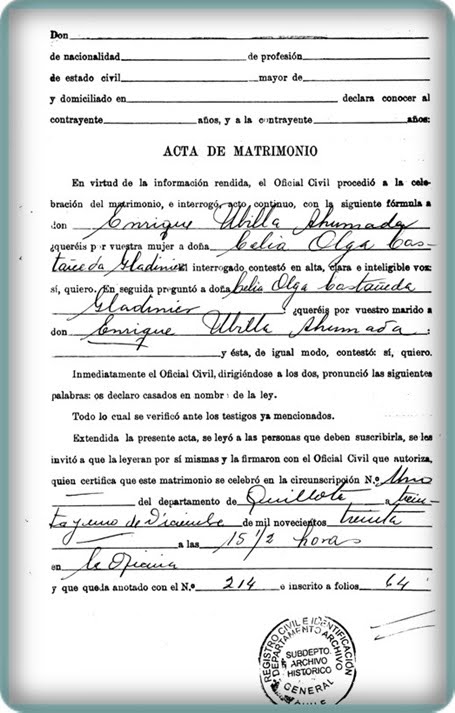 Don
de nacionalidad de profesión
de estado civil mayor de
y domiciliado en declara conocer al
contrayente años, y a la contrayente años:
ACTA DE MATRIMONIO
En virtud de la información rendida, el Oficial Civil procedió a la cele-
bración del matrimonio, e interrogó, acto continuo, con la siguiente fórmula a
don Enrique Ubilla Ahumada
¿queréis por vuestra mujer a doña Celia Olga Cas-
tañeda Gladinier el interrogado contestó en alta, clara e inteligible voz:
sí, quiero. En seguida preguntó a doña Celia Olga Castañeda
Gladinier ¿queréis por vuestro marido a
don Enrique Ubilla Ahumada :
y ésta, de igual modo, contestó: sí, quiero.
Inmediatamente el Oficial Civil, dirigiéndose a los dos, pronunció las siguientes
palabras: os declaro casados en nombre de la ley.
Todo lo cual se verificó ante los testigos ya mencionados.
Extendida la presente acta, se leyó a las personas que deben suscribirla, se les
invitó a que la leyeran por sí mismas y la firmaron con el Oficial Civil que autoriza,
quien certifica que este matrimonio se celebró en la circunscripción N.º Uno
del departamento de Quillota a trein-
ta y uno de Diciembre de mil novecientos treinta
a las 15 1/2 horas
en la Oficina
y que queda anotado con el N.º 214 e inscrito a folios 64
REGISTRO CIVIL E IDENTIFICACIÓN
DEPARTAMENTO ARCHIVO
SUBDEPTO.
ARCHIVO
HISTORICO
GENERAL